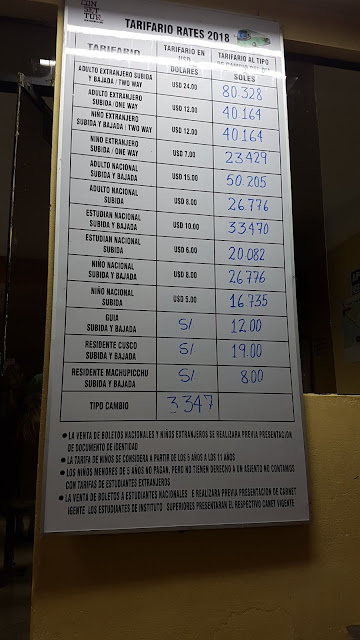 CON
SET
TUR
TARIFARIO RATES 2018
TARIFARIO
TARIFARIO EN
USD
DOLARES
TARIFARIO AL TIPO
DE CAMBIO DEL DIA
SOLES
ADULTO EXTRANJERO SUBIDA
Y BAJADA / TWO WAY
USD 24.00
80.328
ADULTO EXTRANJERO
SUBIDA /ONE WAY
USD 12.00
40.164
NIÑO EXTRANJERO
SUBIDA Y BAJADA / TWO WAY
USD 12.00
40.164
NIÑO EXTRANJERO
SUBIDA / ONE WAY
USD 7.00
23.429
ADULTO NACIONAL
SUBIDA Y BAJADA
USD 15.00
50.205
ADULTO NACIONAL
SUBIDA
USD 8.00
26.776
ESTUDIAN NACIONAL
SUBIDA Y BAJADA
USD 10.00
33.470
ESTUDIAN NACIONAL
SUBIDA
USD 6.00
20.082
NIÑO NACIONAL
SUBIDA Y BAJADA
USD 8.00
26.776
NIÑO NACIONAL
SUBIDA
USD 5.00
16.735
GUIA
SUBIDA Y BAJADA
S/
12.00
RESIDENTE CUSCO
SUBIDA Y BAJADA
S/
19.00
RESIDENTE MACHUPICCHU
SUBIDA Y BAJADA
S/
8.00
TIPO CAMBIO
3.347
● LA VENTA DE BOLETOS NACIONALES Y NIÑOS EXTRANJEROS SE REALIZARA PREVIA PRESENTACION
DE DOCUMENTO DE IDENTIDAD
● LA TARIFA DE NIÑOS SE CONSIDERA A PARTIR DE LOS 5 AÑOS A LOS 11 AÑOS
● LOS NIÑOS MENORES DE 5 AÑOS NO PAGAN, PERO NO TIENEN DERECHO A UN ASIENTO NO CONTAMOS
CON TARIFAS DE ESTUDIANTES EXTRANJEROS
● LA VENTA DE BOLETOS A ESTUDIANTES NACIONALES E REALIZARA PREVIA PRESENTACION DE CARNET
IGENTE LOS ESTUDIANTES DE INSTITUTO SUPERIORES PRESENTARAN EL RESPECTIVO CANET VIGENTE